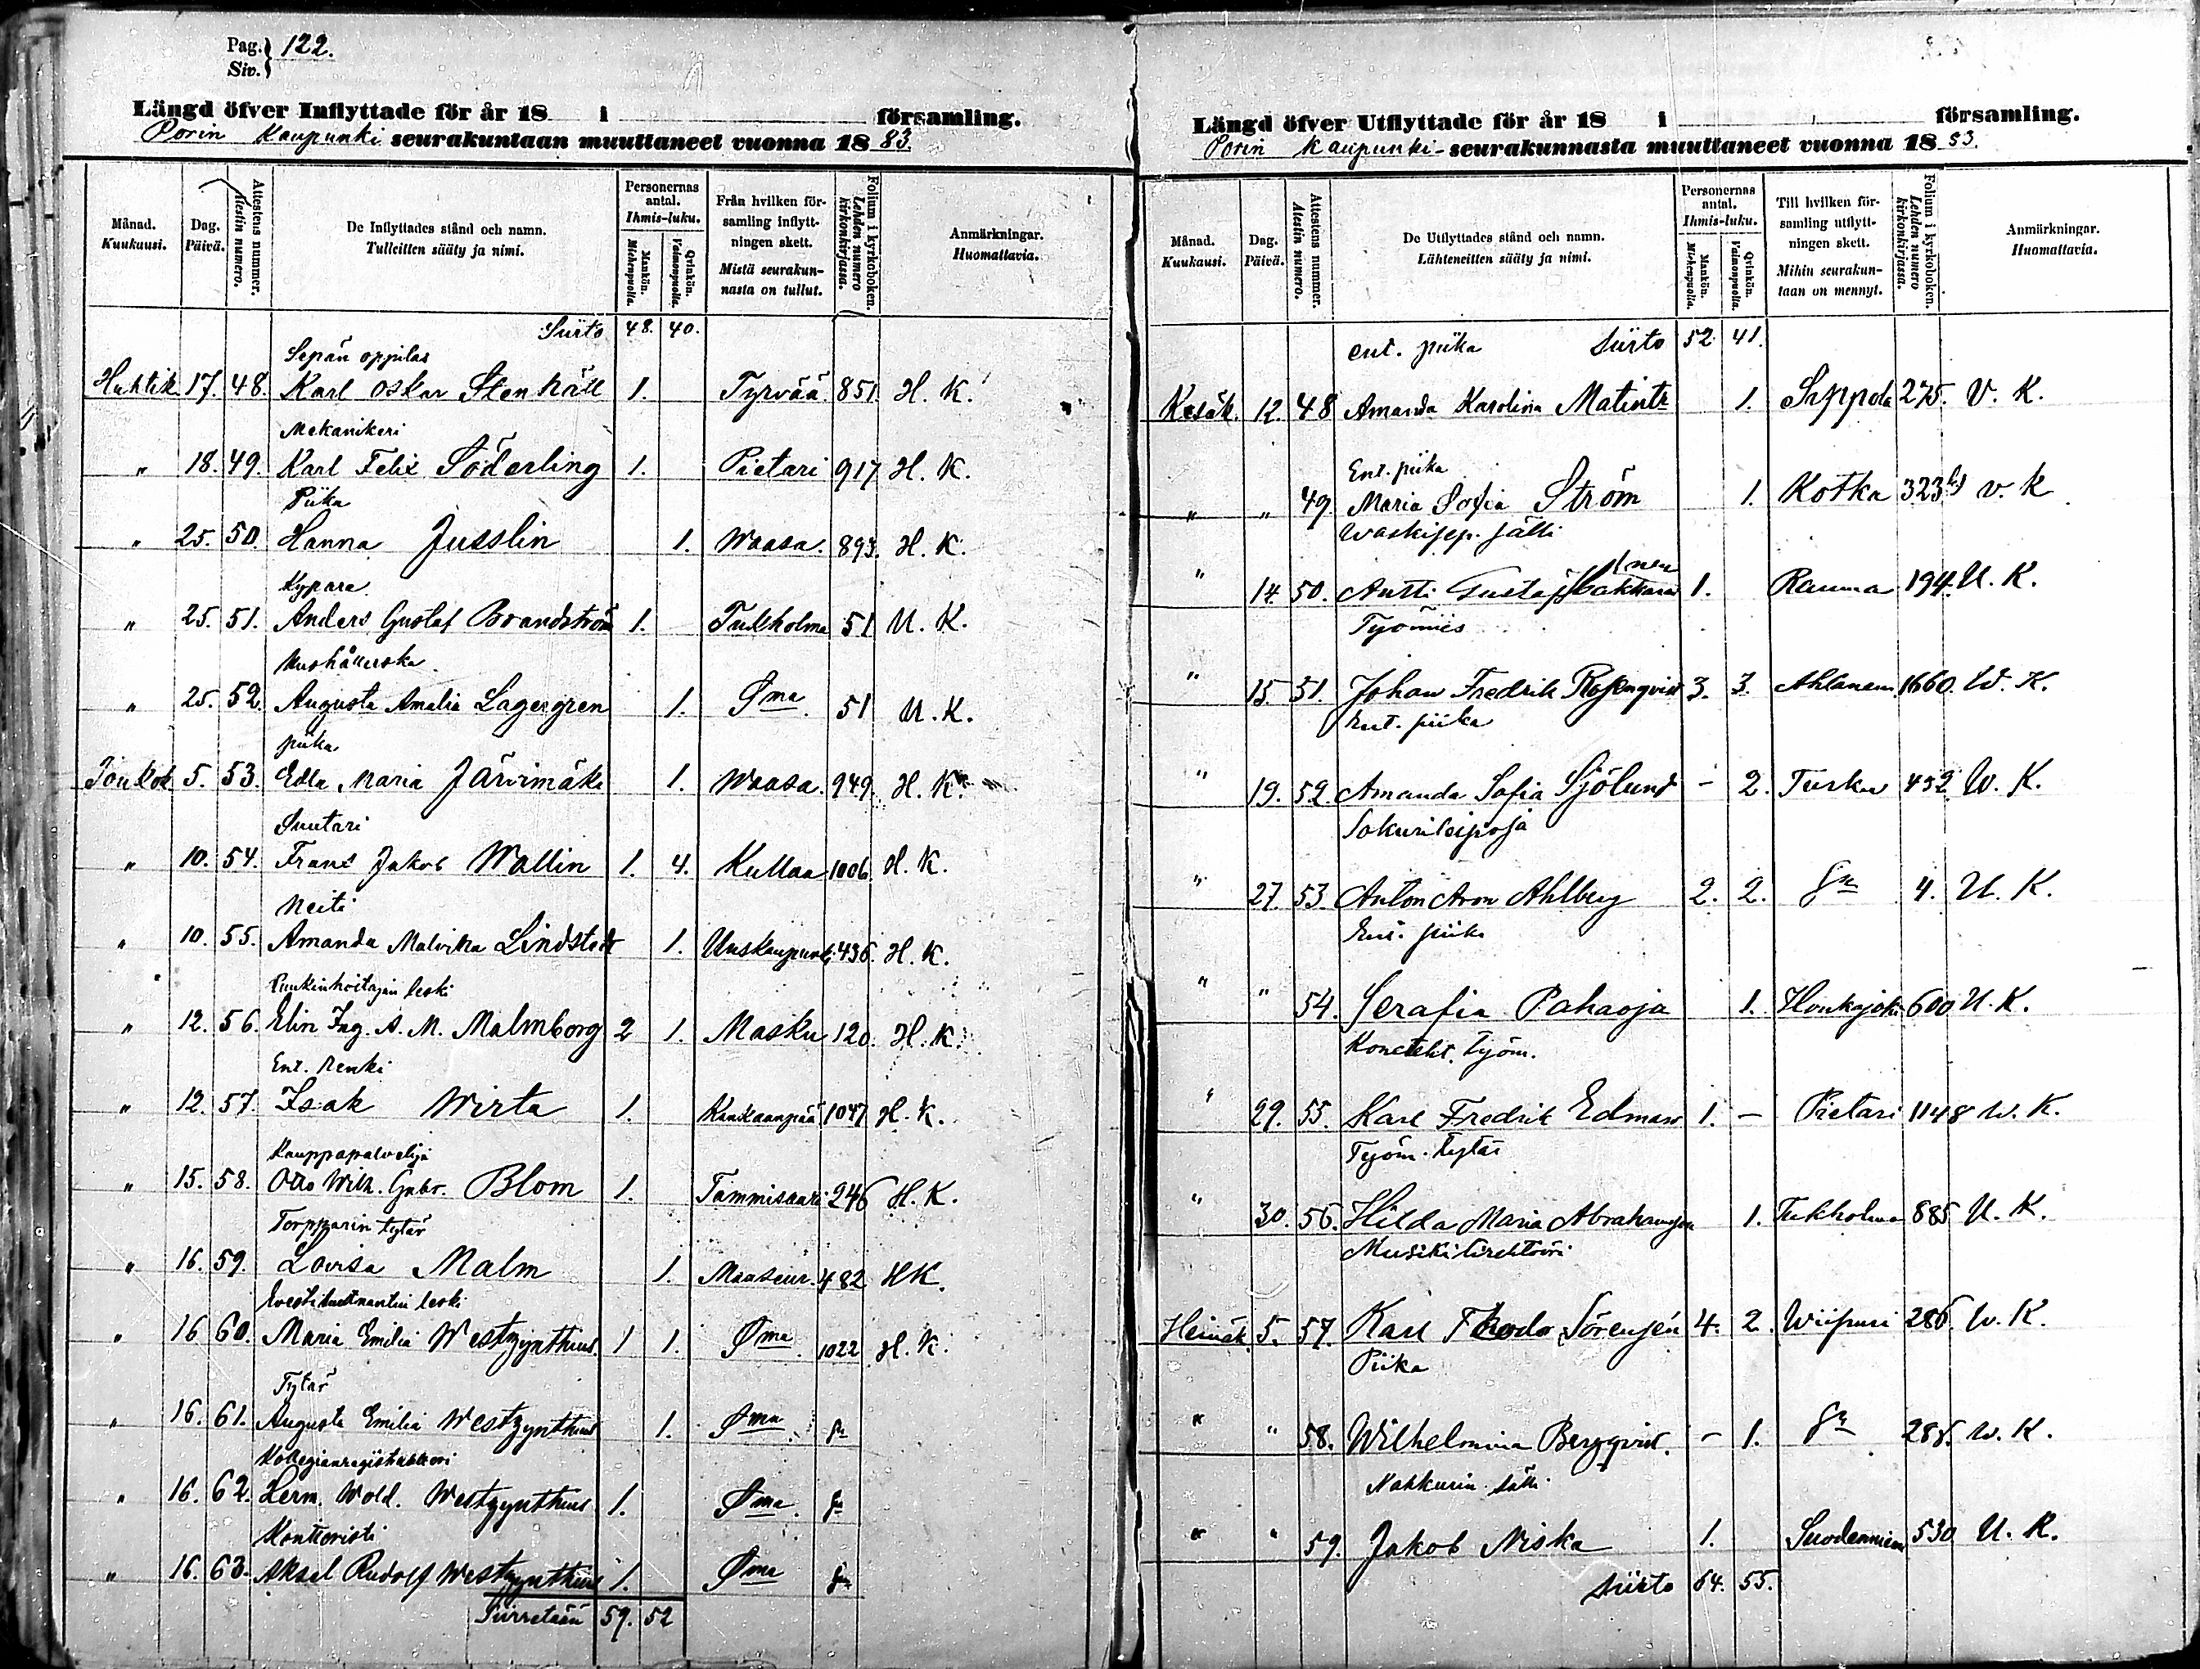 Pag. } 122.
Siv. }
Längd öfver Inflyttade för år 18 i församling.
Porin Kaupunki seurakuntaan muuttaneet vuonna 18 83.
Månad. Kuukausi. Dag. Päivä. Attestens nummer. Atestin numero. De Inflyttades stånd och namn. Tulleitten sääty ja nimi. Personernas antal. Ihmis-luku. Mankön. Miehenpuolia. Qvinkön. Vaimonpuolia. Från hvilken församling inflyttningen skett. Mistä seurakunnasta on tullut. Folium i kyrkoboken. Lehden numero kirkonkirjassa. Anmärkningar. Huomattavia.
Siirto 48. 40.
Sepän oppilas
Huhtik. 17. 48. Karl Oskar Stenhäll 1. Tyrvää 851. H. K.
Mekanikeri
" 18. 49. Karl Felix Söderling 1. Pietari 917 H. K.
Piika
" 25. 50. Hanna Jusslin 1. Waasa. 893. H. K.
Kypare
" 25. 51. Anders Gustaf Brandström 1. Tukholma 51 U. K.
Hushållerska
" 25. 52. Augusta Amalia Lagergren 1. Sma. 51 U. K.
piika
Toukok. 5. 53. Edla Maria Järvimäki 1. Waasa. 949. H. K.
Suutari
" 10. 54. Frans Jakob Wallin 1. 4. Kullaa 1006. H. K.
Neiti
" 10. 55. Amanda Malvika Lindstedt 1. Uuskaupunki 436. H. K.
leski
" 12. 56. Elin Ing. A. M. Malmborg 2 1. Masku 120. H. K.
Ent. Renki
" 12. 57. Isak Wirta 1. Kankaanpää 1047 H. K.
Kauppapalvelija
" 15. 58. Otto Wilh. Gabr. Blom 1. Tammisaari 246 H. K.
Torpparin tytär
" 16. 59. Lovisa Malm 1. Maaseur. 482 H K.
Everstiluutnantin leski
" 16 60. Maria Emilia Westzynthius. 1 1. Sma. 1022 H. K.
Tytär
" 16. 61. Augusta Emilia Westzynthius 1. Sma. Sn
Kollegianregistraattori
" 16. 62. Herm. Wold. Westzynthius 1. Sma. Sn
Konttoristi
" 16. 63. Aksel Rudolf Westzynthius 1. Sma Sn
Siirretään 59. 52
Längd öfver Utflyttade för år 18 i församling.
Porin Kaupunki- seurakunnasta muuttaneet vuonna 18 83.
Månad. Kuukausi. Dag. Päivä. Attestens nummer. Atestin numero. De Utflyttades stånd och namn. Lähteneitten sääty ja nimi. Personernas antal. Ihmis-luku. Mankön. Miehenpuolia. Qvinkön. Vaimonpuolia. Till hvilken församling utflyttningen skett. Mihin seurakuntaan on mennyt. Folium i kyrkoboken. Lehden numero kirkonkirjassa. Anmärkningar. Huomattavia.
ent. piika Siirto 52 41.
Kesäk. 12. 48 Amanda Karolina 1. 275. V. K.
Ent. piika
" " 49. Maria Sofia Ström 1. Kotka 323 V. K
Waskisep. sälli
" 14. 50. Antti Gustaf 1. Rauma 194. U. K.
Työmies
" 15. 51. Johan Fredrik Rosenqvist 3. 3. Ahlainen 1660. W. K.
Ent. piika
" 19. 52. Amanda Sofia Sjölund - 2. Turku 452. W. K.
Sokurileipoja
" 27. 53. Anton Aron Ahlberg 2. 2. Sn 4. U. K.
Ent. piika
" " 54. Serafia Pahaoja 1. Honkajoki 600 U. K.
Koneteht. työm.
" 29. 55. Karl Fredrik Edman 1. - Pietari 1148 W. K.
Työm. tytär
" 30. 56. Hilda Maria Abrahamson 1. Tukholma 885 U. K.
Musikitirehtööri
Heinäk. 5. 57. Karl Theodor Sörensen 4. 2. Wiipuri 286. W. K.
Piika
" " 58. Wilhelmina Bergqvist. - 1. Sn 285. W. K.
Nahkurin sälli
" " 59. Jakob Niska 1. Suodenniemi 530 U. K.
siirto 64. 55.